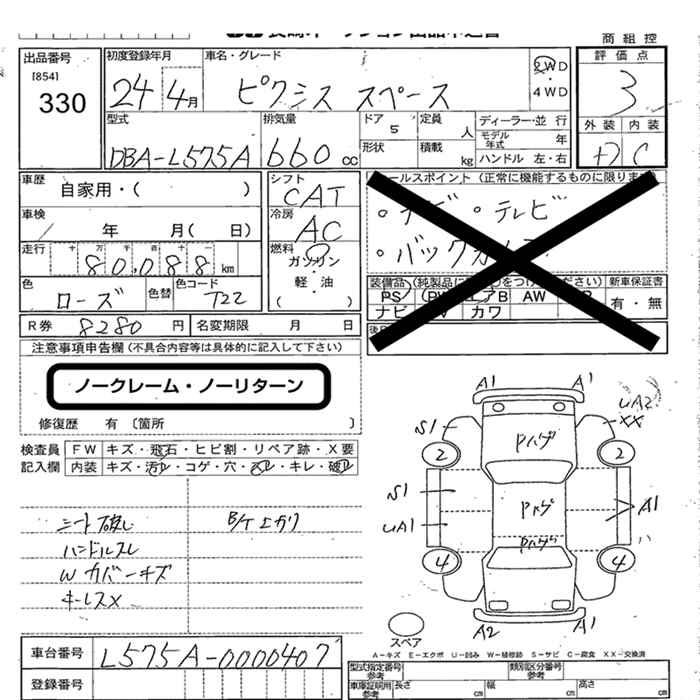 商組控
出品番号
[854]
330
初度登録年月
24年4月
車名・グレード
ピクシス スペース
2WD
・
4WD
評価点
3
外装 内装
+D C
型式
DBA-L575A
排気量
660cc
ドア
5
定員
人
形状
積載
kg
ディーラー・並行
モデル年式 年
ハンドル 左・右
車歴
自家用・( )
車検
年 月( 日)
走行
十万千百十一
80,088 km
色
ローズ
色替
色コード
T22
シフト
CAT
冷房
AC
燃料
ガソリン
・
軽・油
( )
セールスポイント (正常に機能するものに限ります)
・ナビ・テレビ
・バックカメラ
装備品 (純製品に○をつけてください)
新車保証書
PS PW エアB AW
有・無
ナビ TV カワ
R券 8280円 名変期限 月 日
注意事項申告欄 (不具合内容等は具体的に記入して下さい)
ノークレーム・ノーリターン
修復歴 有 〔箇所 〕
検査員
記入欄
FW キズ・飛石・ヒビ割・リペア跡・X要
内装 キズ・汚れ・コゲ・穴・スレ・キレ・破レ
シート破レ B/ドエカリ
ハンドルスレ
Wカバーキズ
キーレスX
A1 A1
UA2
XX
S1
Pハゲ
2 2
S1
UA1
Pハゲ
A1
Pハゲ
4 4
A2 A1
スペア
A-キズ E-エクボ U-凹み W-補修跡 S-サビ C-腐食 XX-交換済
車台番号 L575A-0000407
登録番号
型式指定番号
参考
類別区分番号
参考
車庫証明用
参考
長さ cm 幅 cm 高さ cm